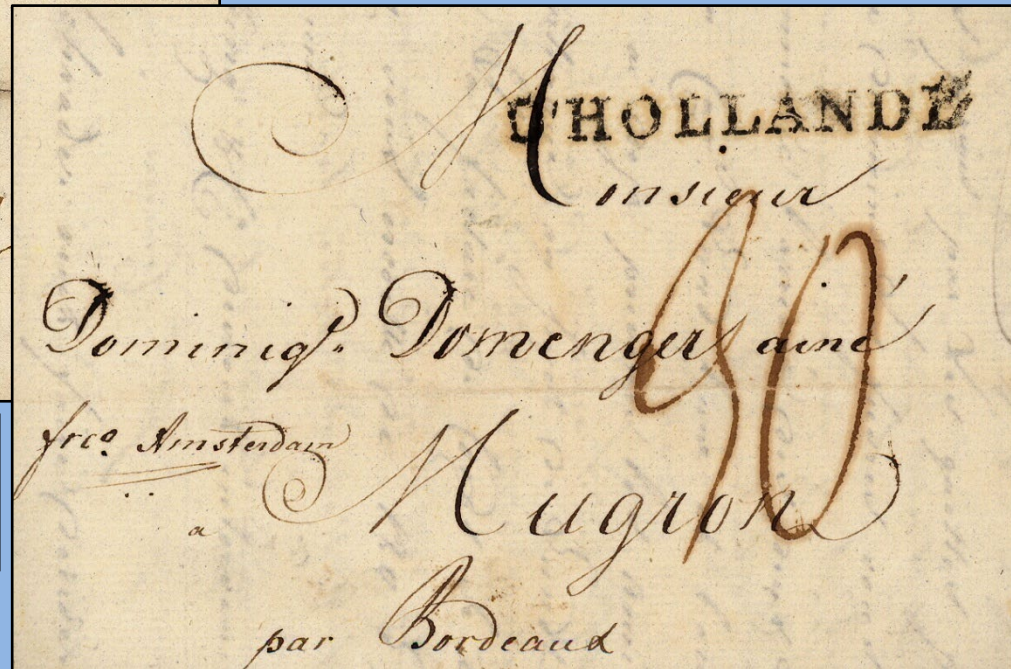 D'HOLLANDE
Monsieur
Dominiqe. Domenger ainé
frco. Amsterdam
a Mugron
par Bordeaux